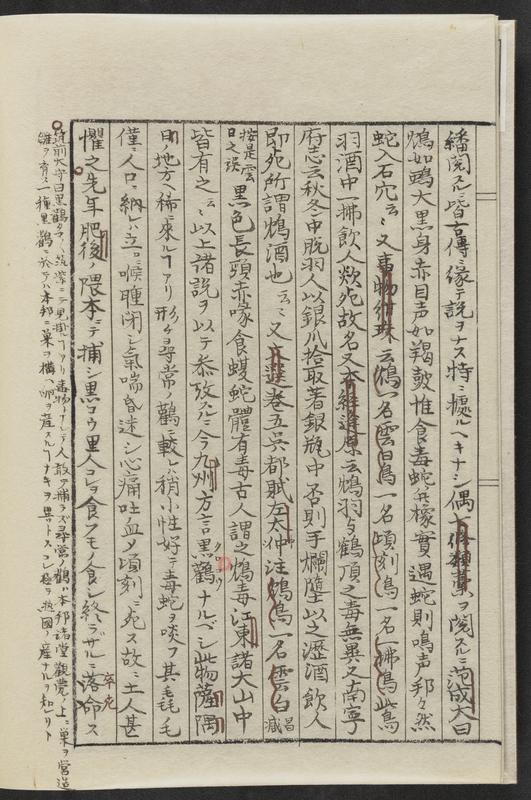 繙閲スルニ皆古傳ニ縁テ説ヲナス特ニ據ルヘキナシ偶本艸彙ヲ閲スルニ范成大曰
鴆如鴞大黒身赤目声如羯鼓惟食毒蛇及橡實遇蛇則鳴声邦々然
蛇入石穴云云又事物紺珠云鴆一名雲日鳥一名頃刻鳥一名一拂鳥此鳥
羽酒中一拂飲人欻死故名又本經逢原云鴆羽与鶴頂之毒無異又南寧
府志云秋冬中脱羽人以銀爪拾取著銀瓶中否則手爛墮以之瀝酒飲人
即死所謂鴆酒也云云又文選巻五呉都賦左太仲注鴆鳥一名雲白
按是雲日之誤黒色長頸赤喙食蝮蛇體有毒古人謂之鴆毒江東諸大山中
皆有之云云以上諸説ヲ以テ参攷スルニ今九州方言黒鸛ナルベシ此物薩隅
日ノ地方ヘ稀ニ來ルヿアリ形チ尋常ノ鸛ニ較レハ稍小性好テ毒蛇ヲ啖フ其毛毳毛
僅ニ人口ニ納レハ立ニ喉腫閉シ氣喘昏迷シ心痛吐血ノ頃刻ニ死ス故ニ土人甚
懼之先年肥後ノ隈本ニテ捕シ黒コウ里人コレヲ食フモノ食シ終ラザルニ落命ス
卒死
筑前大守曰黒鸛タマ〱筑紫ニテ見掛ルヿアリ毒物トナシテ人敢テ捕ラズ尋常ノ鸛ハ本邦諸堂觀甍ノ上ニ巣ヲ営造
雛ヲ育ス一種黒鸛ニ於テハ本邦ニ巣ヲ構ヘ卵ヲ産スルヿナキヲ異トスコレ極テ熱國ノ産ナルヲ知レリト